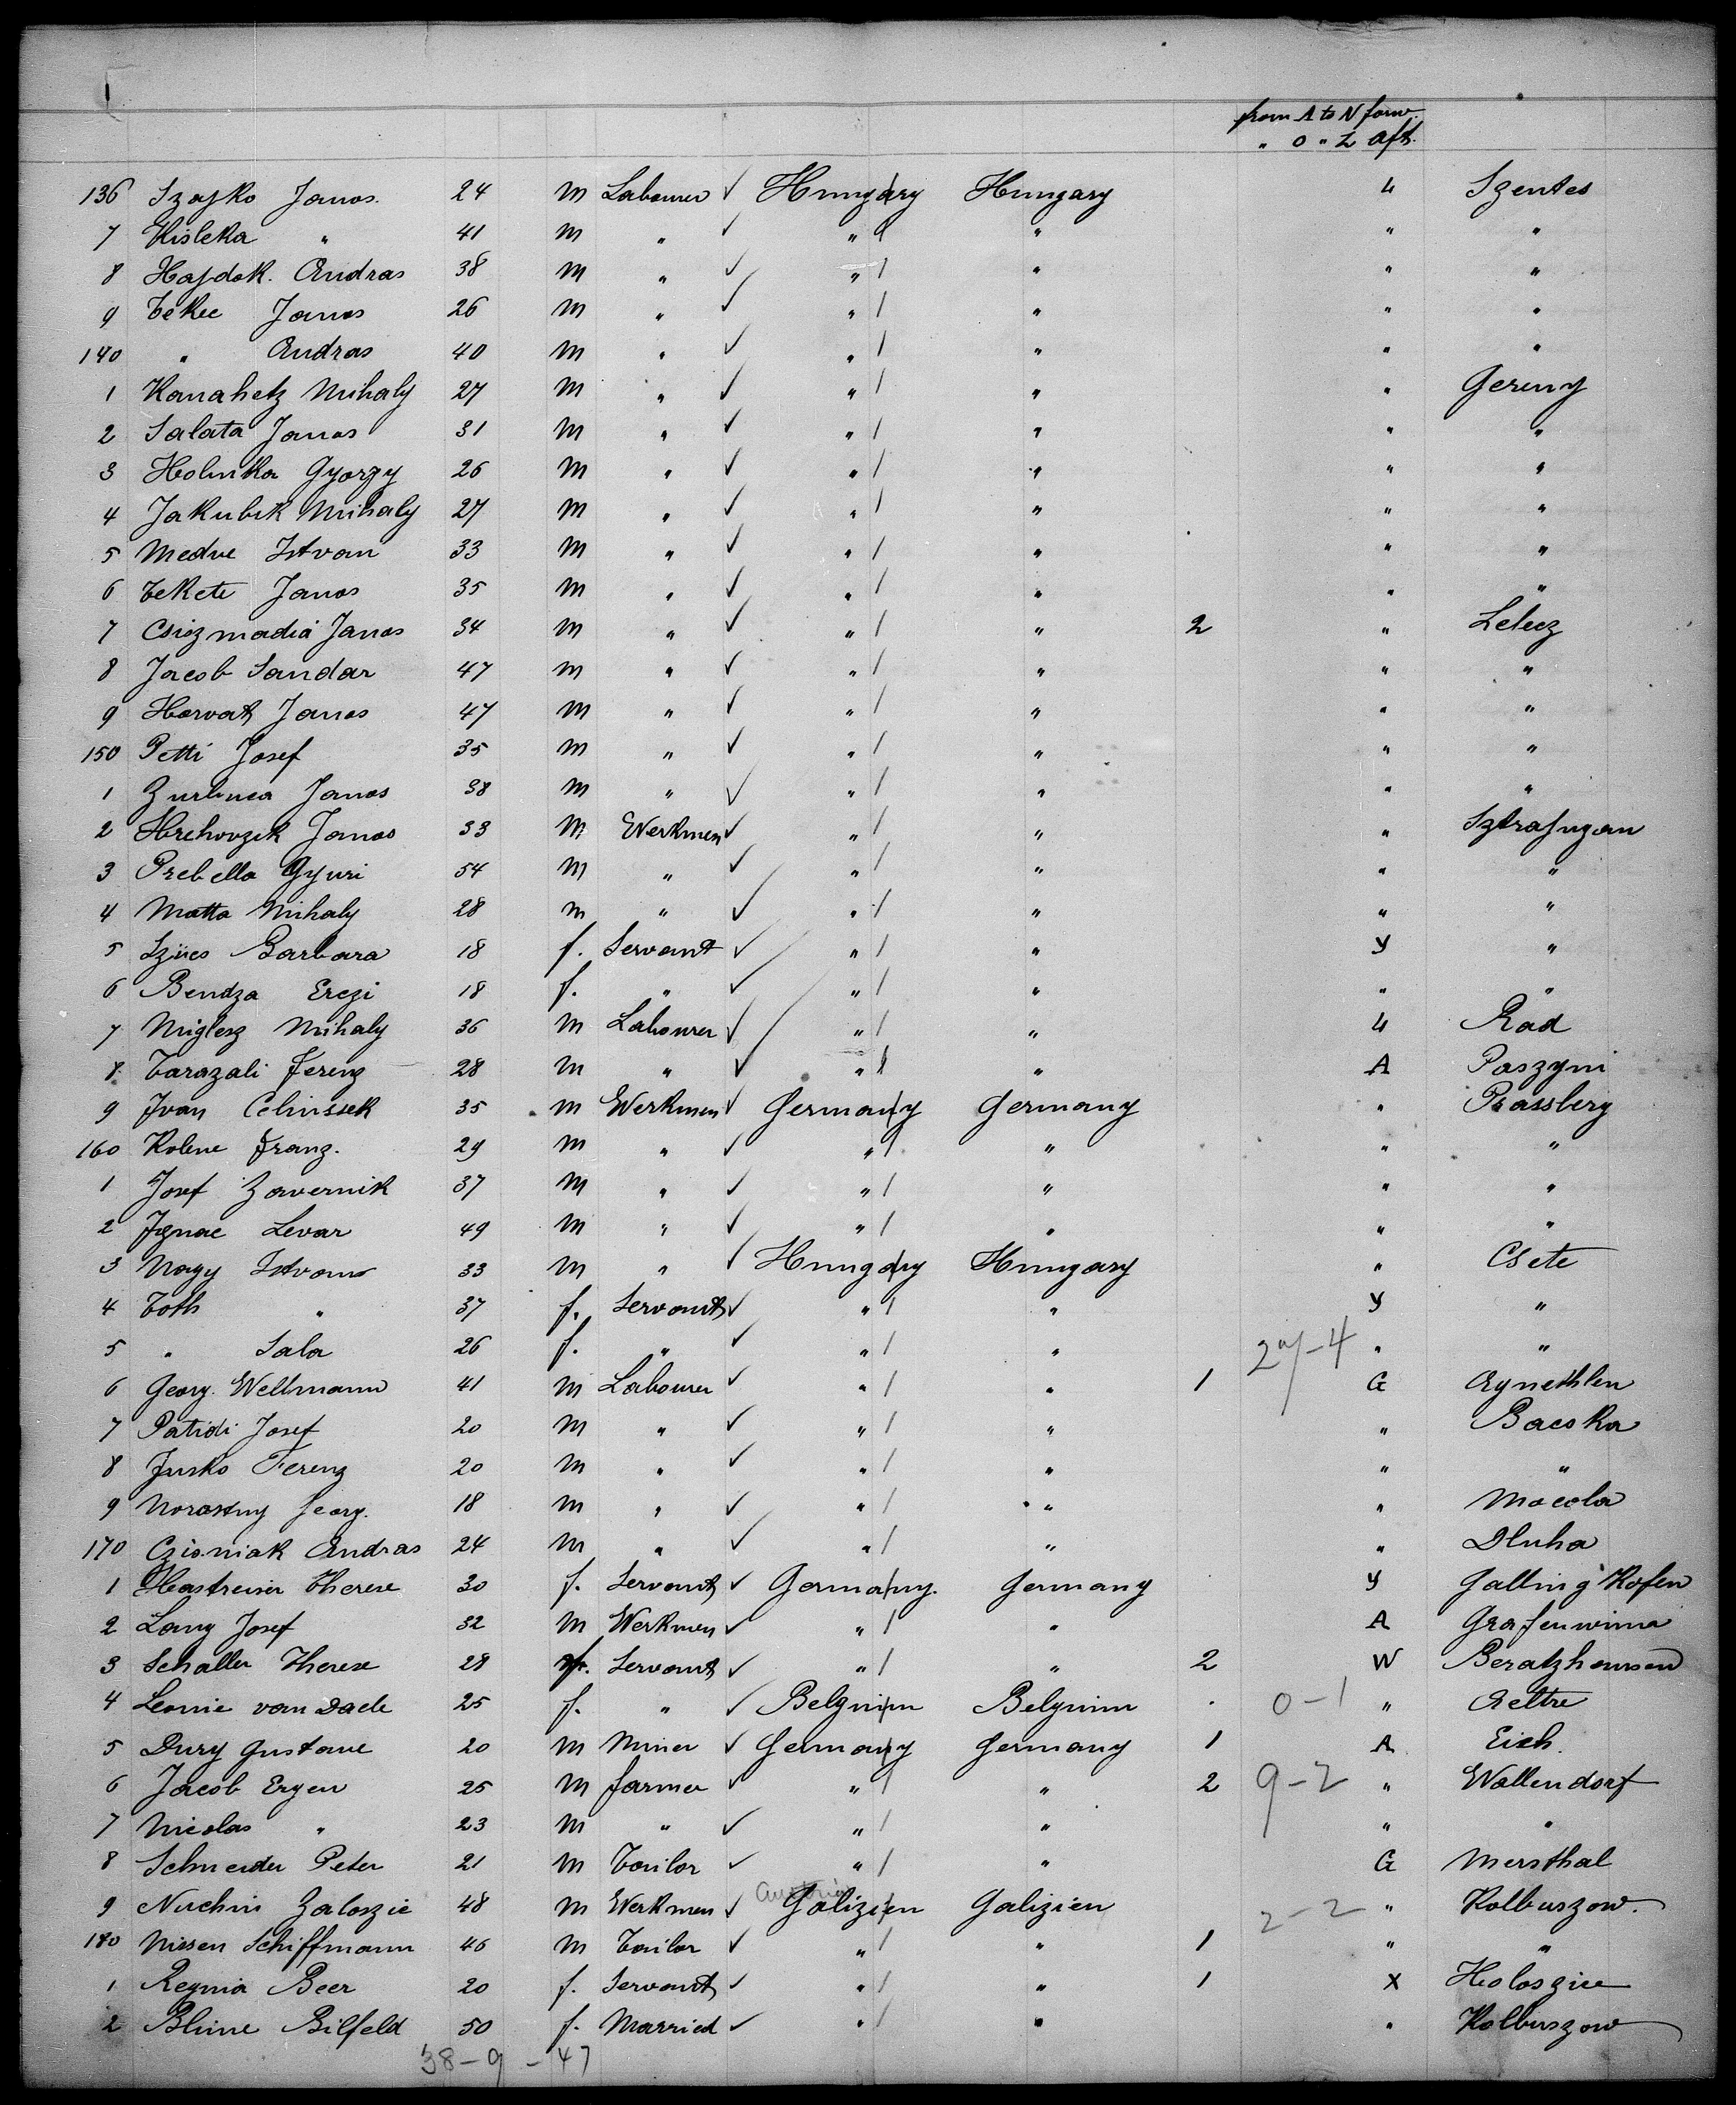 from A to N forw.
" O " Z Aft.
136 Szajko Janos. 24 m Labourer ✓ Hungary Hungary 4 Szentes
7 Kisleka " 41 m " ✓ " " " "
8 Hajdok. Andras 38 m " ✓ " " " "
9 Tekee Janos 26 m " ✓ " " " "
140 " Andras 40 m " ✓ " " " "
1 Kanahetz Mihaly 27 m " ✓ " " " Gereny
2 Salata Janos 31 m " ✓ " " " "
3 Holinka Gyorgy 26 m " ✓ " " " "
4 Jakubik Mihaly 27 m " ✓ " " " "
5 Medve Istvan 33 m " ✓ " " " "
6 Fekete Janos 35 m " ✓ " " " "
7 Csizmadia Janos 34 m " ✓ " " 2 " Lelesz
8 Jacob Sandar 47 m " ✓ " " " "
9 Horvath Janos 47 m " ✓ " " " "
150 Petti Josef 35 m " ✓ " " " "
1 Zurbuca Janos 38 m " ✓ " " " "
2 Hrehovzik Janos 33 m Werkmen ✓ " " "
3 Prebella Gyuri 54 m " ✓ " " " "
4 Matta Mihaly 28 m " ✓ " " " "
5 Szücs Barbara 18 f. Servant ✓ " " Y "
6 Bendza Erezi 18 f. " ✓ " " " "
7 Miglesz Mihaly 36 m Labourer ✓ " " 4 Rad
8 Tarazali Ferenz 28 m " ✓ " " A Paszyni
9 Ivan Celinssek 35 m Werkmen ✓ Germany Germany " Prassberg
160 Kolene Franz. 29 m " ✓ " " " "
1 Josef Zavernik 37 m " ✓ " " " "
2 Ignac Levar 49 m " ✓ " " " "
3 Nagy Istvan 33 m " ✓ Hungary Hungary " Csete
4 Toth " 37 f. Servant ✓ " " Y "
5 " Sala 26 f. " ✓ " " " "
6 Georg. Wellmann 41 m Labourer ✓ " " 1 G Agnethlen
7 Patidi Josef 20 m " ✓ " " " Bacska
8 Jusko Ferenz 20 m " ✓ " " " "
9 Georg. 18 m " ✓ " " " Macola
170 Czisniak Andras 24 m " ✓ " " " Dluha
1 Hastreiter Therese 30 f. Servant ✓ Germany. Germany Y Galling Kofen
2 Lang Josef 32 m Werkmen ✓ " " A Grafenwinna
3 Schaller Therese 28 f. Servant ✓ " " 2 W Beratzhausen
4 Leonie van Daele 25 f. " ✓ Belgium Belgium 0-1 " Aeltre
5 Dury Gustave 20 m Miner ✓ Germany Germany 1 A Eich
6 Jacob Ergen 25 m farmer ✓ " " 2 9-2 " Wallendorf
7 Nicolas " 23 m " ✓ " " " "
8 Schneider Peter 21 m Tailor ✓ " " G Mersthal
Austria
9 Nuchin Zaloszie 48 m Werkmen ✓ Galizien Galizien 2-2 " Kolbuszow.
180 Nissen Schiffmann 46 m Tailor ✓ " " 1 " "
1 Regina Beer 20 f. Servant ✓ " " 1 X Holoszice
2 Blime Bilfeld 50 f. Married ✓ " " " Kolbuszow
38-9-47